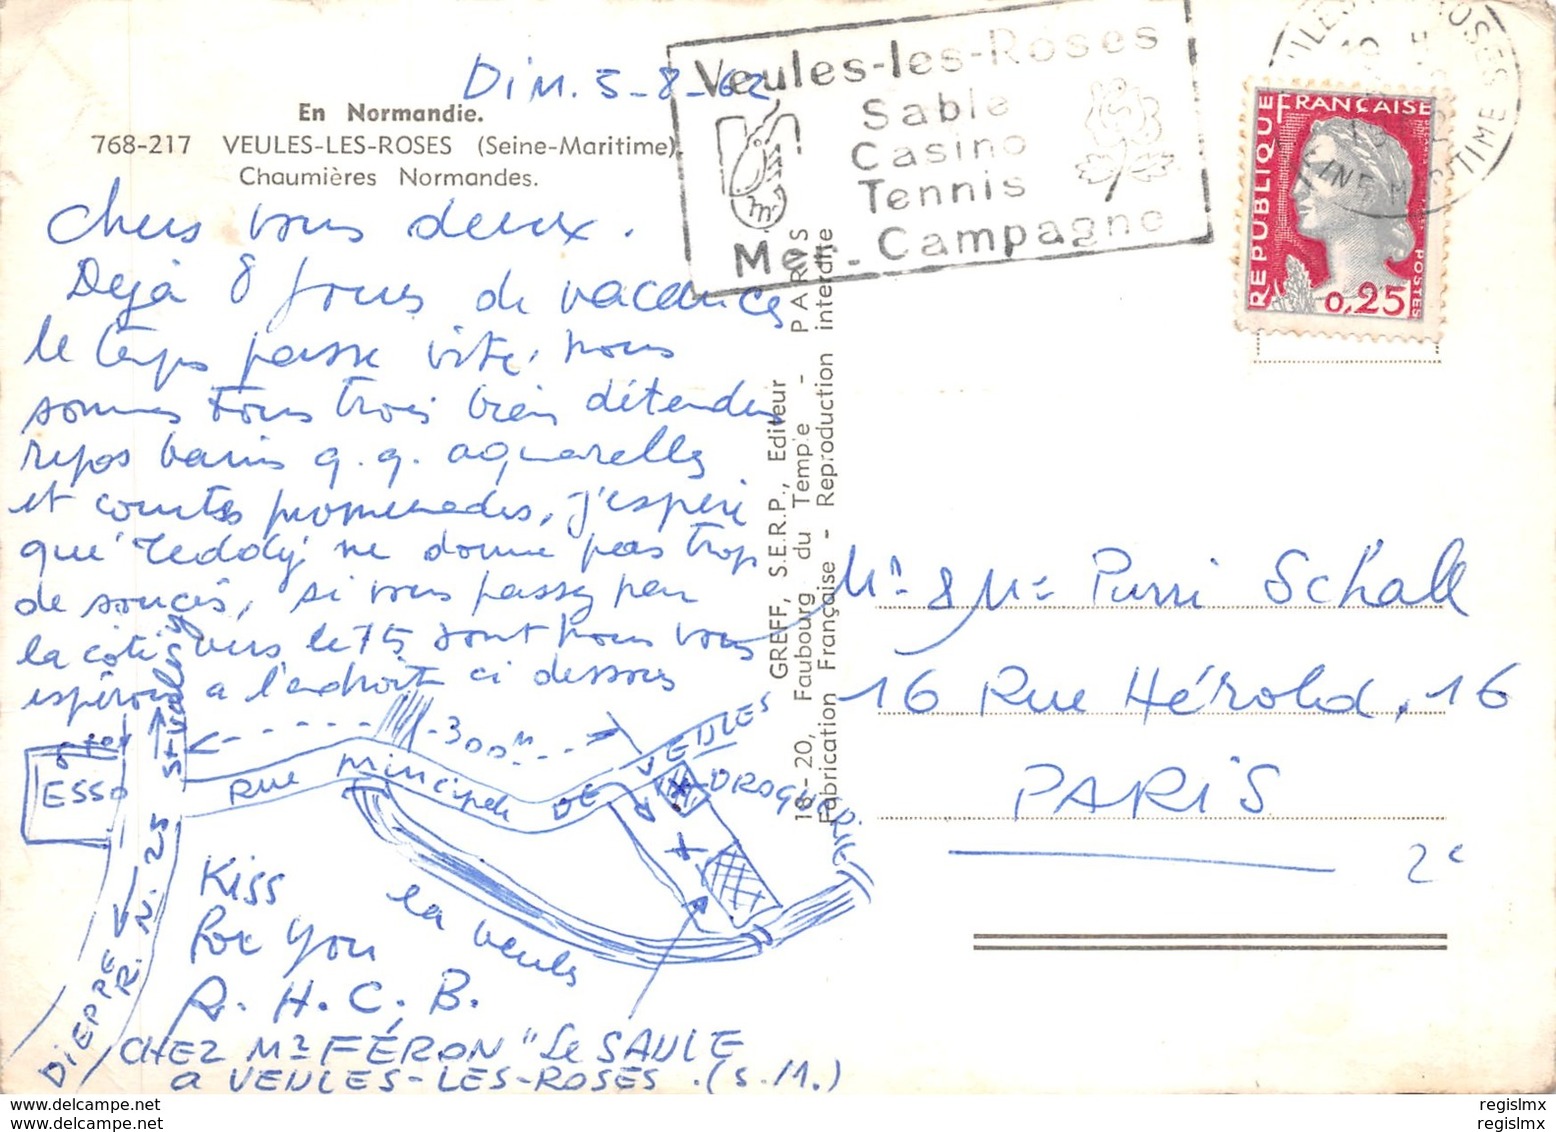 Dim. 5-8-62
En Normandie.
768-217 VEULES-LES-ROSES (Seine-Maritime).
Chaumières Normandes.
Chers vous deux.
Déjà 8 jours de vacances
le temps passe vite, nous
sommes tous trois bien détendus
repos bains q.q. aquarelles
et courtes promenades, j'espère
que Teddy ne donne pas trop
de soucis, si vous passez par
la côte vers le 15 août nous vous
espérons a l'endroit ci dessous
St-Valery
300m
ESSO
Rue Principale DE VEULES
DROGUERIE
R.N. 25
DIEPPE
la veules
Kiss
For You
R. H. C. B.
CHEZ Mr FÉRON "Le SAULE
a VEULES-LES-ROSES. (S.M.)
GREFF, S.E.R.P., Editeur
18-20, Faubourg du Temple - PARIS
Fabrication Française - Reproduction interdite
Veules-les-Roses
Sable
Casino
Tennis
Mer - Campagne
REPUBLIQUE FRANÇAISE
POSTES
0,25
SEINE MARITIME
Mr & Me Pierre Schall
16 Rue Hérold, 16
PARIS
2e
delcampe.net
regislmx
delcampe.net
regislmx